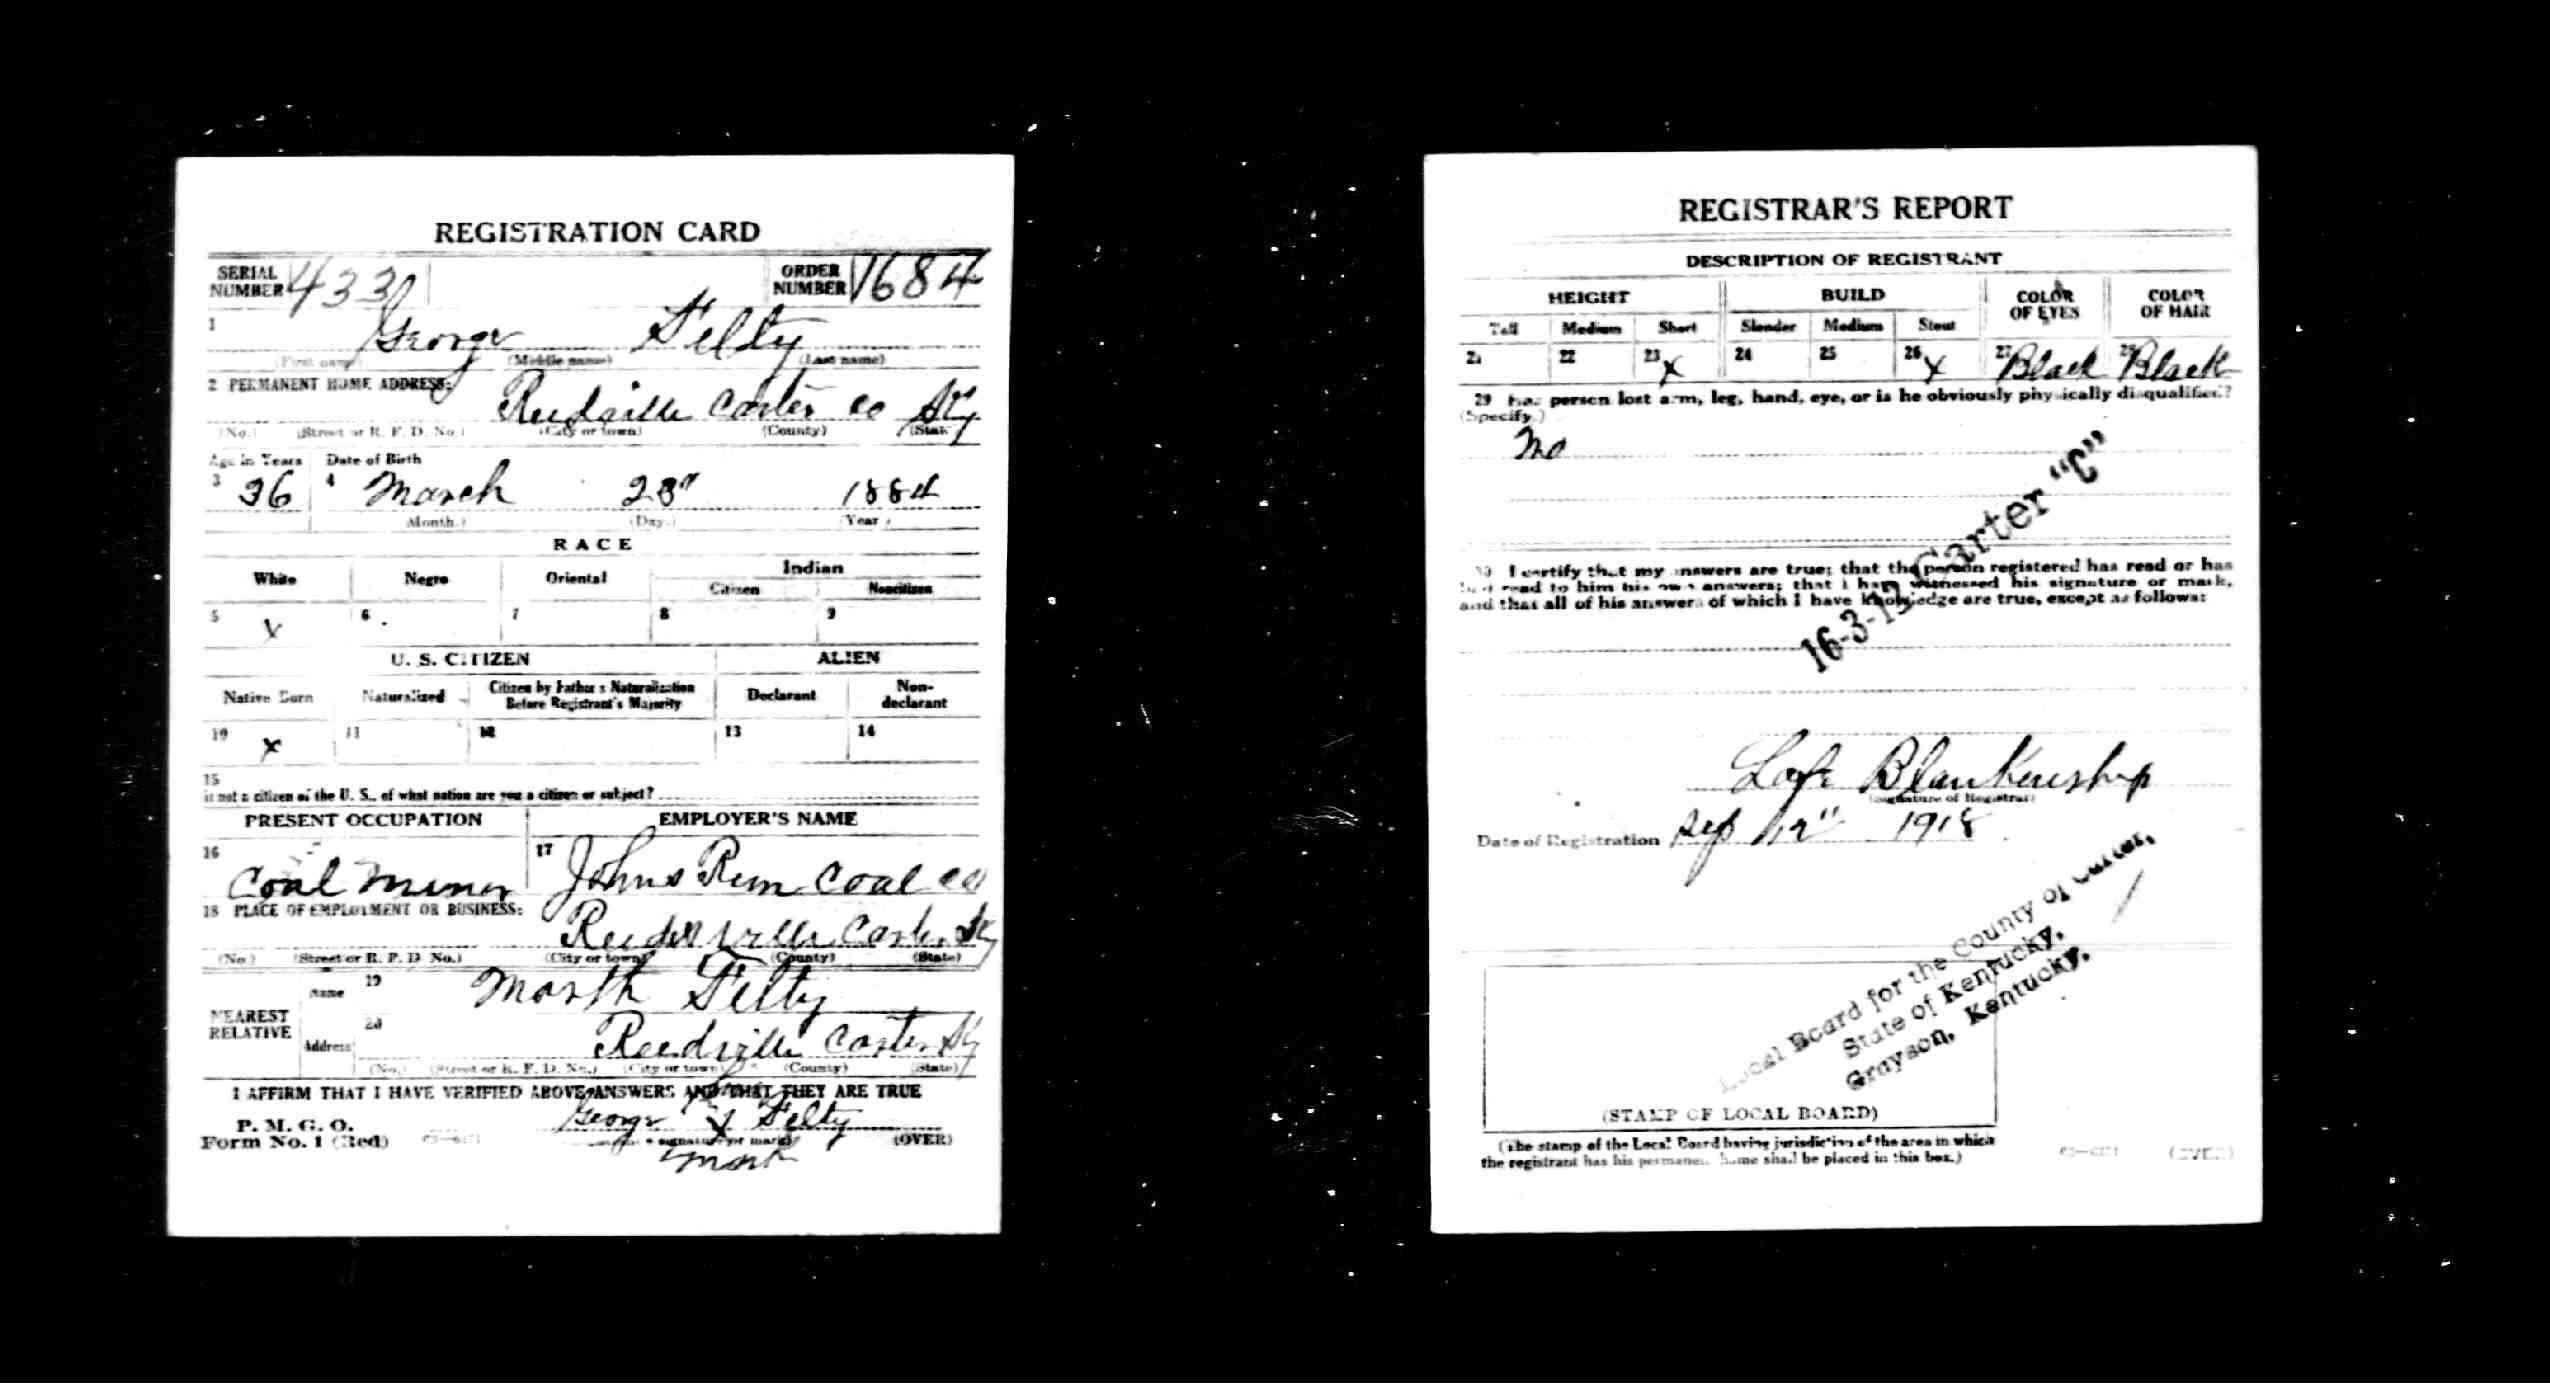 REGISTRATION CARD
SERIAL NUMBER 433 ORDER NUMBER 1684
1 George Felty
(First name) (Middle name) (Last name)
2 PERMANENT HOME ADDRESS:
Reedville Carter co Ky
(No.) (Street or R. F. D. No.) (City or town) (County) (State)
Age in Years Date of Birth
3 36 4 March 28" 1884
(Month.) (Day.) (Year.)
RACE
White Negro Oriental Indian
Citizen Noncitizen
5 X 6 7 8 9
U. S. CITIZEN ALIEN
Native Born Naturalized Citizen by Father's Naturalization Before Registrant's Majority Declarant Non-declarant
10 X 11 12 13 14
15
If not a citizen of the U. S., of what nation are you a citizen or subject?
PRESENT OCCUPATION EMPLOYER'S NAME
16 Coal Miner 17 Johns Run Coal co
18 PLACE OF EMPLOYMENT OR BUSINESS:
Reedville Carter Ky
(No.) (Street or R. F. D. No.) (City or town) (County) (State)
NEAREST RELATIVE
Name 19 Felty
Address 20 Reedville Carter Ky
(No.) (Street or R. F. D. No.) (City or town) (County) (State)
I AFFIRM THAT I HAVE VERIFIED ABOVE ANSWERS AND THAT THEY ARE TRUE
P. M. G. O.
Form No. 1 (Red) George X Felty
(Registrant's signature or mark) (OVER)
mark
REGISTRAR'S REPORT
DESCRIPTION OF REGISTRANT
HEIGHT BUILD COLOR OF EYES COLOR OF HAIR
Tall Medium Short Slender Medium Stout
21 22 23 X 24 25 26 X 27 Black 28 Black
29 Has person lost arm, leg, hand, eye, or is he obviously physically disqualified?
(Specify.)
No
16-3-13 Carter "C"
30 I certify that my answers are true; that the person registered has read or has
had read to him his own answers; that I have witnessed his signature or mark,
and that all of his answers of which I have knowledge are true, except as follows:
Blankenship
(Signature of Registrar)
Date of Registration Sep 12" 1918
Local Board for the County of Carter,
State of Kentucky,
Grayson, Kentucky.
(STAMP OF LOCAL BOARD)
(The stamp of the Local Board having jurisdiction of the area in which
the registrant has his permanent home shall be placed in this box.)
(OVER)